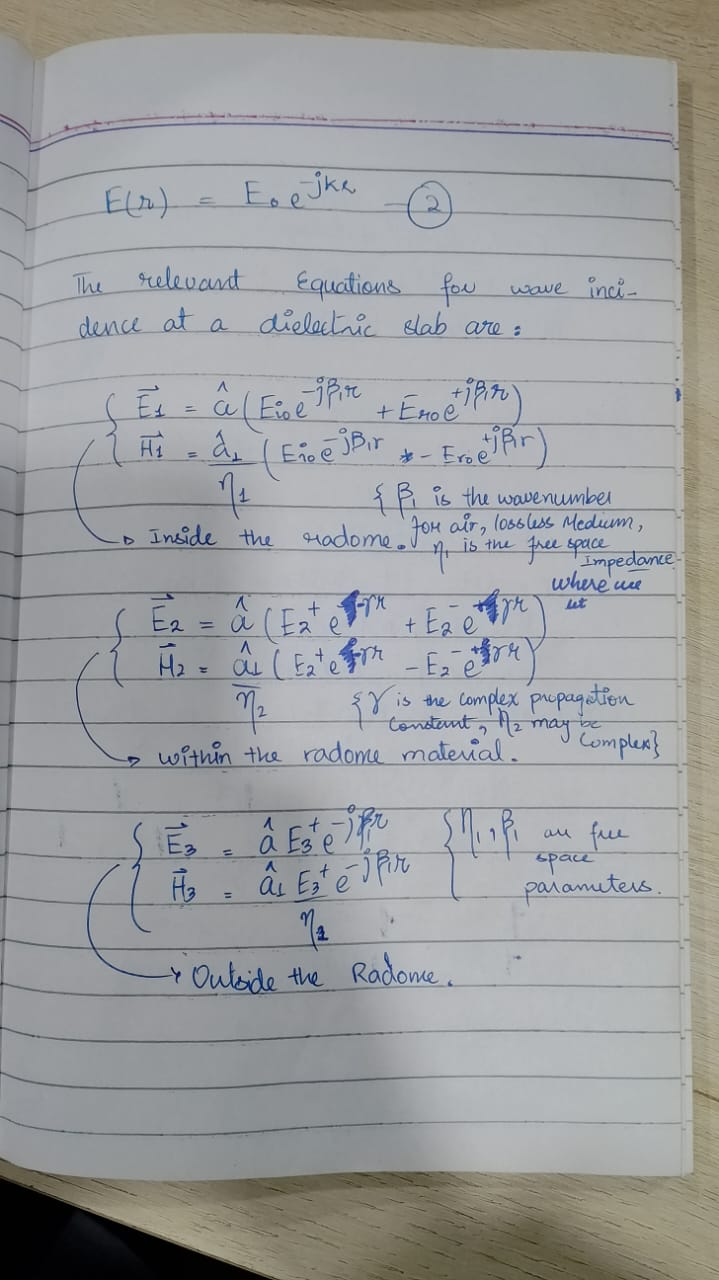 E(r) = E₀ e^{-jkr} — ②
The relevant Equations for wave inci-
dence at a dielectric slab are :
E⃗₁ = â (E_{i0} e^{-jβ₁r} + E_{r0} e^{+jβ₁r})
H⃗₁ = â_⊥/η₁ (E_{i0} e^{-jβ₁r} - E_{r0} e^{+jβ₁r})
{ β₁ is the wavenumber
for air, lossless Medium,
→ Inside the radome. η₁ is the free space
Impedance
where we
let
E⃗₂ = â (E₂⁺ e^{-γr} + E₂⁻ e^{+γr})
H⃗₂ = â_⊥/η₂ (E₂⁺ e^{-γr} - E₂⁻ e^{+γr})
{ γ is the complex propagation
Constant, η₂ may be
Complex}
→ within the radome material.
E⃗₃ = â E₃⁺ e^{-jβ₁r} { η₁, β₁ are free
space
H⃗₃ = â_⊥ E₃⁺/η₁ e^{-jβ₁r} parameters.
→ Outside the Radome.